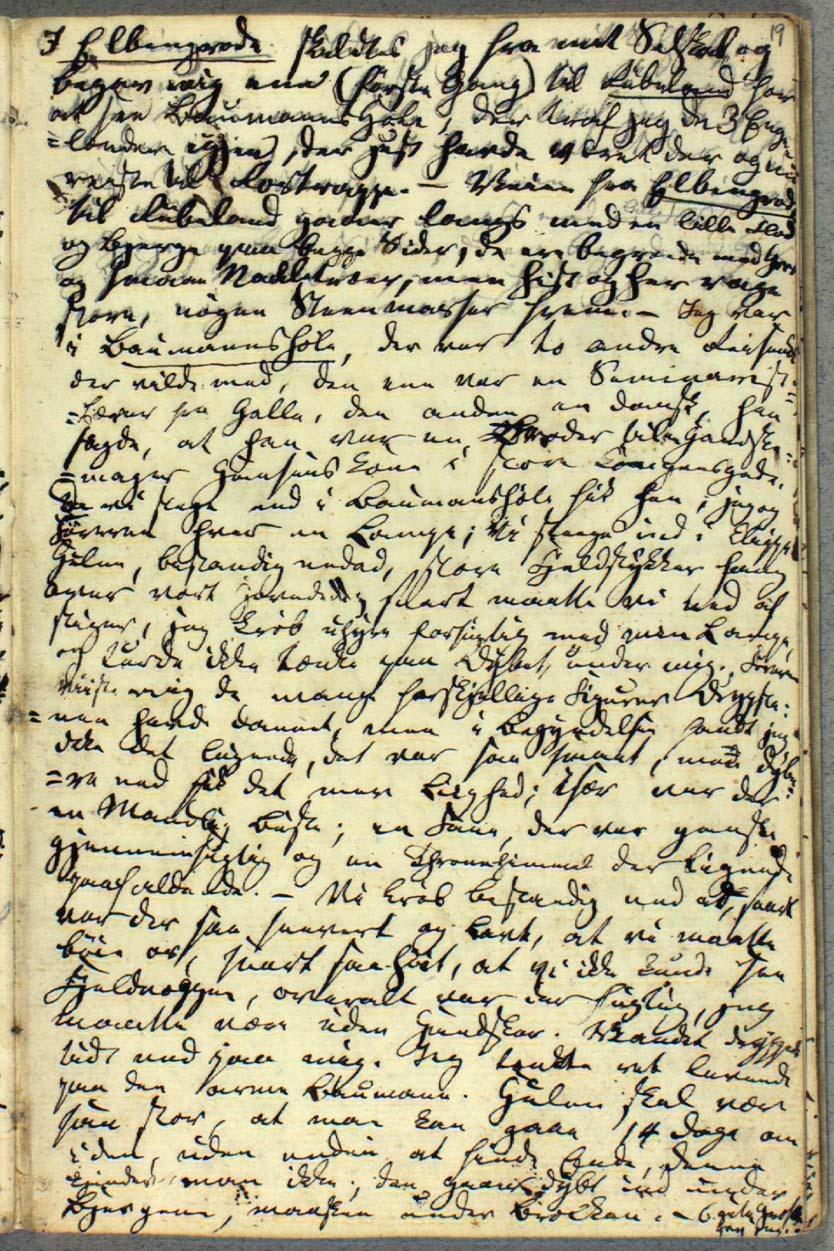 19
I Elbengrode skildtes jeg fra mit Selskab og
begav mig ene (første Gang) til Rübeland for
at see Baumannshöle, der traf jeg de 3 Enge-
=lændere igjen, der just havde været der og nu
reiste til Rostrappe. — Veien fra Elbengrode
til Rübeland gaaer langs med en lille Flod
og Bjerge paa begge Sider, de ere begroede med
og smaae Naaletræer, men hist og her rage
store, nøgne Steenmasser frem. — Jeg var
i Baumannshöle, der var to andre Reisende
der vilde med, den ene var en Seminarist-
=lærer fra Halle, den anden en dansk, han
sagde, at han var en Broder til Handske-
=mager Hansens Kone i store Kongensgade.
Da vi stege ned i Baumanshöle fik han, jeg og
Føreren hver en Lampe; Vi stege ind i
Hulen, bestandig nedad, store Fjeldstykker hang
over vort Hoved, snart maatte vi ned af
stiger, jeg krøb uhyre forsigtig med min Lampe,
og turde ikke tænke paa Dybet under mig. Føreren
viiste mig de mange forskjellige Figurer Drypste-
=nen havde dannet, men i Begyndelsen fandt jeg
ikke det lignede, det var saa smaat, men dybe-
=re ned fik det mere Lighed; især var der
en Mands Buste; en Fane, der var ganske
gjennemsigtig og en Thronhimmel der lignede
paafaldende. — Vi krøb bestandig ned ad, snart
var der saa snevert og lavt, at vi maatte
böie os, snart saa høit, at vi ikke kunde see
Fjeldvæggen, overalt var der fugtig, jeg
maatte være uden Handsker. Vandet dryppede
tidt ned paa mig. Jeg tænkte ret levende
paa den arme Baumann. Hulen skal være
saa stor, at man kan gaae 14 Dage om
i den, uden endnu at finde Ende, denne
kjender man ikke; den gaaer dybt ind under
Bjergene, maaskee under Brocken. — 6